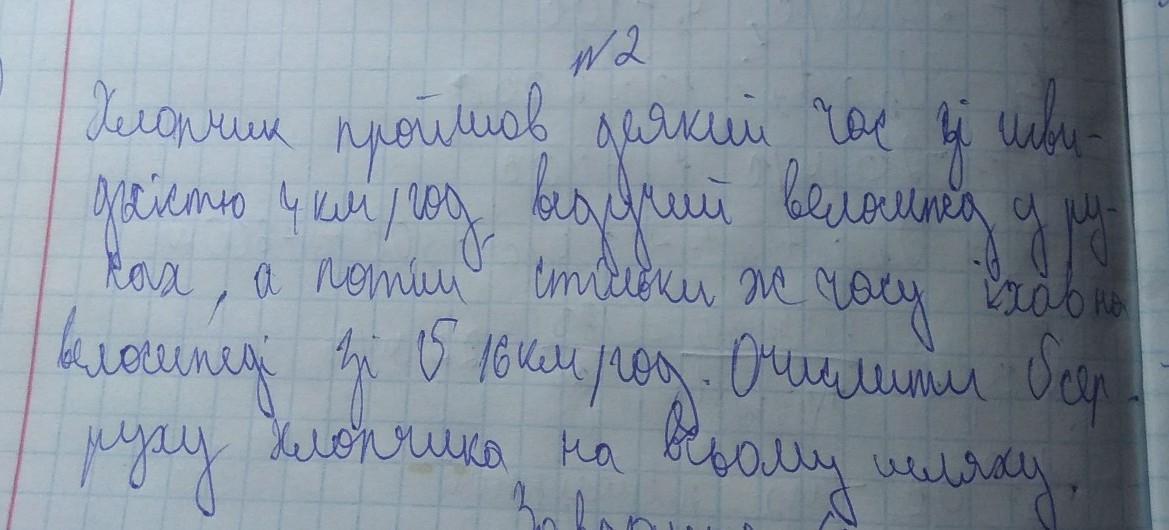 №2
Хлопчик пройшов деякий час зі шви-
дкістю 4 км/год, ведучий велосипед у ру-
ках, а потім стільки ж часу їхав на
велосипеді зі V 16 км/год. Очислити V сер.
руху хлопчика на всьому шляху.